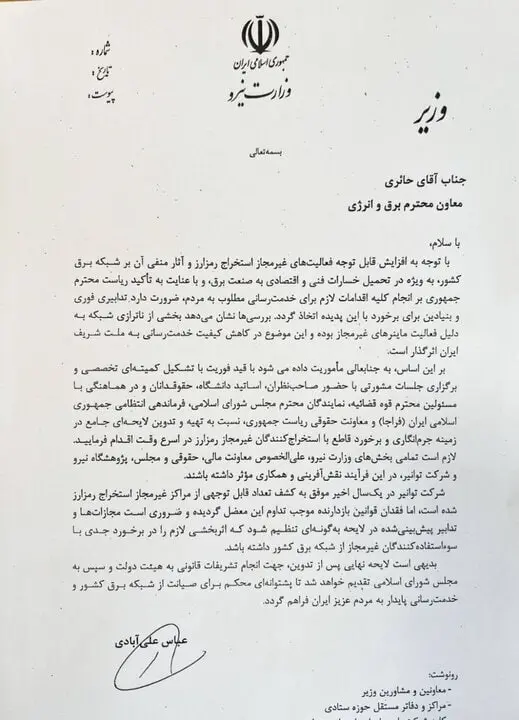 جمهوری اسلامی ایران
وزارت نیرو
وزیر
شماره :
تاریخ :
پیوست :
بسمه‌تعالی
جناب آقای حائری
معاون محترم برق و انرژی
با سلام،
با توجه به افزایش قابل توجه فعالیت‌های غیرمجاز استخراج رمزارز و آثار منفی آن بر شبکه برق
کشور، به ویژه در تحمیل خسارات فنی و اقتصادی به صنعت برق، و با عنایت به تأکید ریاست محترم
جمهوری بر انجام کلیه اقدامات لازم برای خدمت‌رسانی مطلوب به مردم، ضرورت دارد تدابیری فوری و
بنیادین برای برخورد با این پدیده اتخاذ گردد. بررسی‌ها نشان می‌دهد بخشی از ناترازی شبکه به
دلیل فعالیت ماینرهای غیرمجاز بوده و این موضوع در کاهش کیفیت خدمت‌رسانی به ملت شریف
ایران اثرگذار است.
بر این اساس، به جنابعالی مأموریت داده می شود با قید فوریت با تشکیل کمیته‌ای تخصصی و
برگزاری جلسات مشورتی با حضور صاحب‌نظران، اساتید دانشگاه، حقوقدانان و در هماهنگی با
مسئولین محترم قوه قضائیه، نمایندگان محترم مجلس شورای اسلامی، فرماندهی انتظامی جمهوری
اسلامی ایران (فراجا) و معاونت حقوقی ریاست جمهوری، نسبت به تهیه و تدوین لایحه‌ای جامع در
زمینه جرم‌انگاری و برخورد قاطع با استخراج‌کنندگان غیرمجاز رمزارز در اسرع وقت اقدام فرمایید.
لازم است تمامی بخش‌های وزارت نیرو، علی‌الخصوص معاونت مالی، حقوقی و مجلس، پژوهشگاه نیرو
و شرکت توانیر، در این فرآیند نقش‌آفرینی و همکاری مؤثر داشته باشند.
شرکت توانیر در یک‌سال اخیر موفق به کشف تعداد قابل توجهی از مراکز غیرمجاز استخراج رمزارز
شده است، اما فقدان قوانین بازدارنده موجب تداوم این معضل گردیده و ضروری است مجازات‌ها و
تدابیر پیش‌بینی‌شده در لایحه به‌گونه‌ای تنظیم شود که اثربخشی لازم را در برخورد جدی با
سوءاستفاده‌کنندگان غیرمجاز از شبکه برق کشور داشته باشد.
بدیهی است لایحه نهایی پس از تدوین، جهت انجام تشریفات قانونی به هیئت دولت و سپس به
مجلس شورای اسلامی تقدیم خواهد شد تا پشتوانه‌ای محکم برای صیانت از شبکه برق کشور و
خدمت‌رسانی پایدار به مردم عزیز ایران فراهم گردد.
عباس علی‌آبادی
رونوشت:
- معاونین و مشاورین وزیر
- مراکز و دفاتر مستقل حوزه ستادی